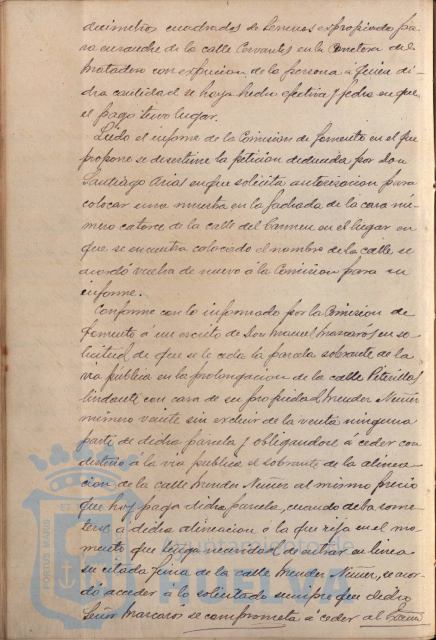 decimetros cuadrados de terreno expropiado pa-
ra ensanche de la calle Cervantes en la Carretera del
Matadero con expresion de la persona á quien di-
cha cantidad se haya hecho efectiva y fecha en que
el pago tuvo lugar.
Leido el informe de la Comision de fomento en el que
propone se desestime la peticion deducida por Don
Santiago Arias en que solicita autorizacion para
colocar una muestra en la fachada de la casa nú-
mero catorce de la calle del Carmen en el lugar en
que se encuentra colocado el nombre de la calle se
acordó vuelva de nuevo á la Comision para su
informe.
Conforme con lo informado por la Comision de
fomento á un escrito de Don Manuel Mascarós en so-
licitud de que se le ceda la parcela sobrante de la
via pública en la prolongacion de la calle
lindante con casa de su propiedad Mendez Nuñez
número veinte sin excluir de la venta ninguna
parte de dicha parcela y obligandose á ceder con
destino á la via publica el sobrante de la alinea-
cion de la calle Mendez Nuñez al mismo precio
que hoy pago dicha parcela, cuando deba some-
terse á dicha alineacion ó la que rija en el mo-
mento que tenga necesidad de entrar en linea
su citada finca de la calle Mendez Nuñez, se acor-
dó acceder á lo solicitado siempre que dicho
Señor Mascarós se comprometa á ceder al
Ayuntamiento de
HUELVA
PORTUS MARIS